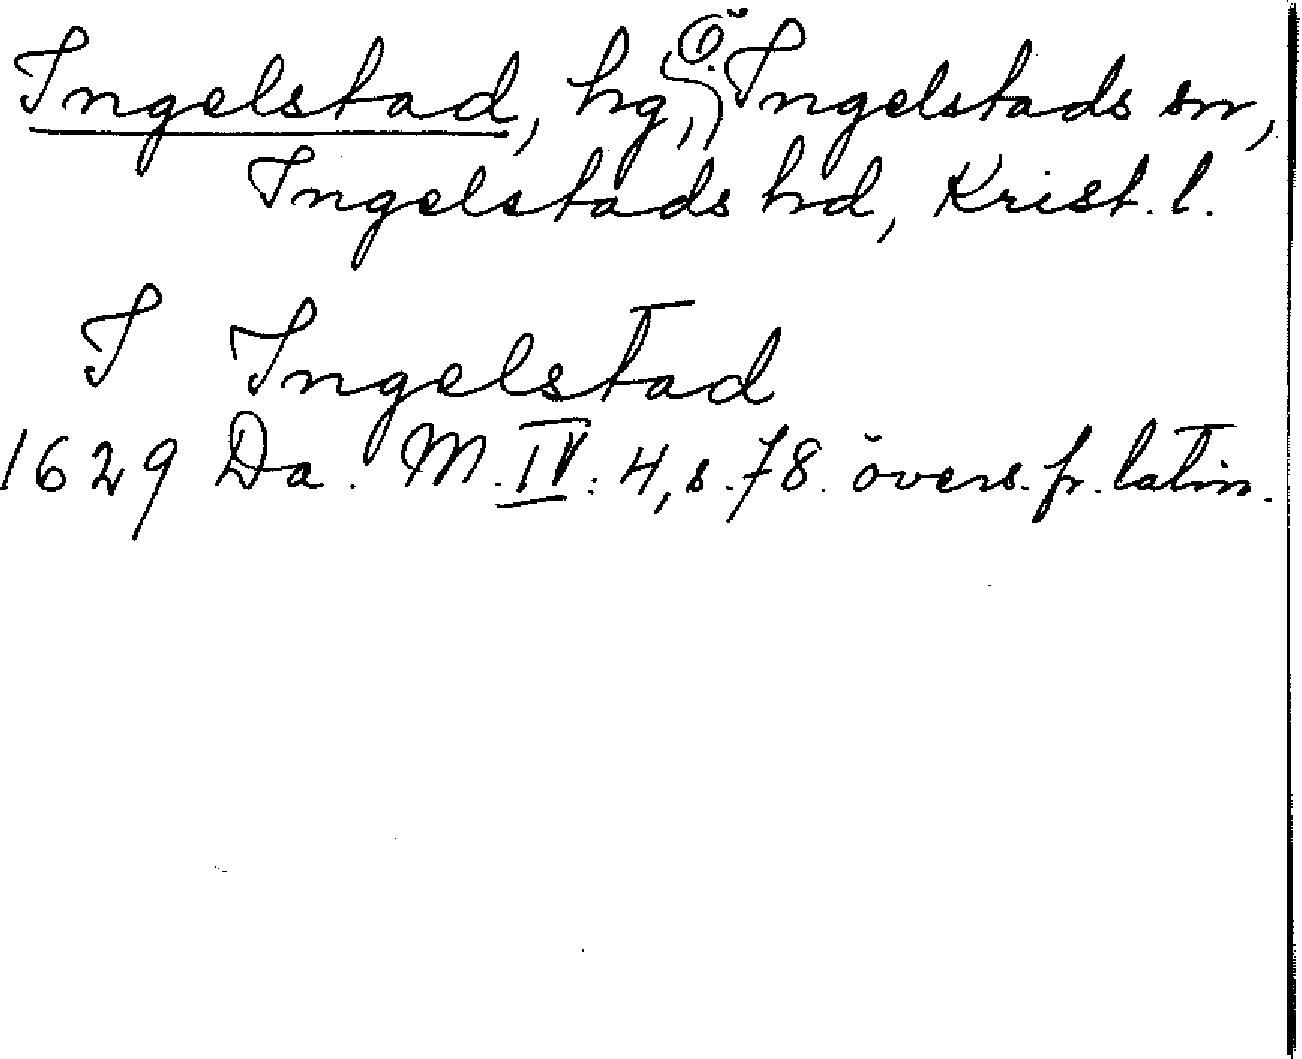 Ingelstad, hg, Ö. Ingelstads sn,
Ingelstads hd, Krist. l.
I Ingelstad
1629 Da. M. IV: 4, s. 78. övers. fr. latin.